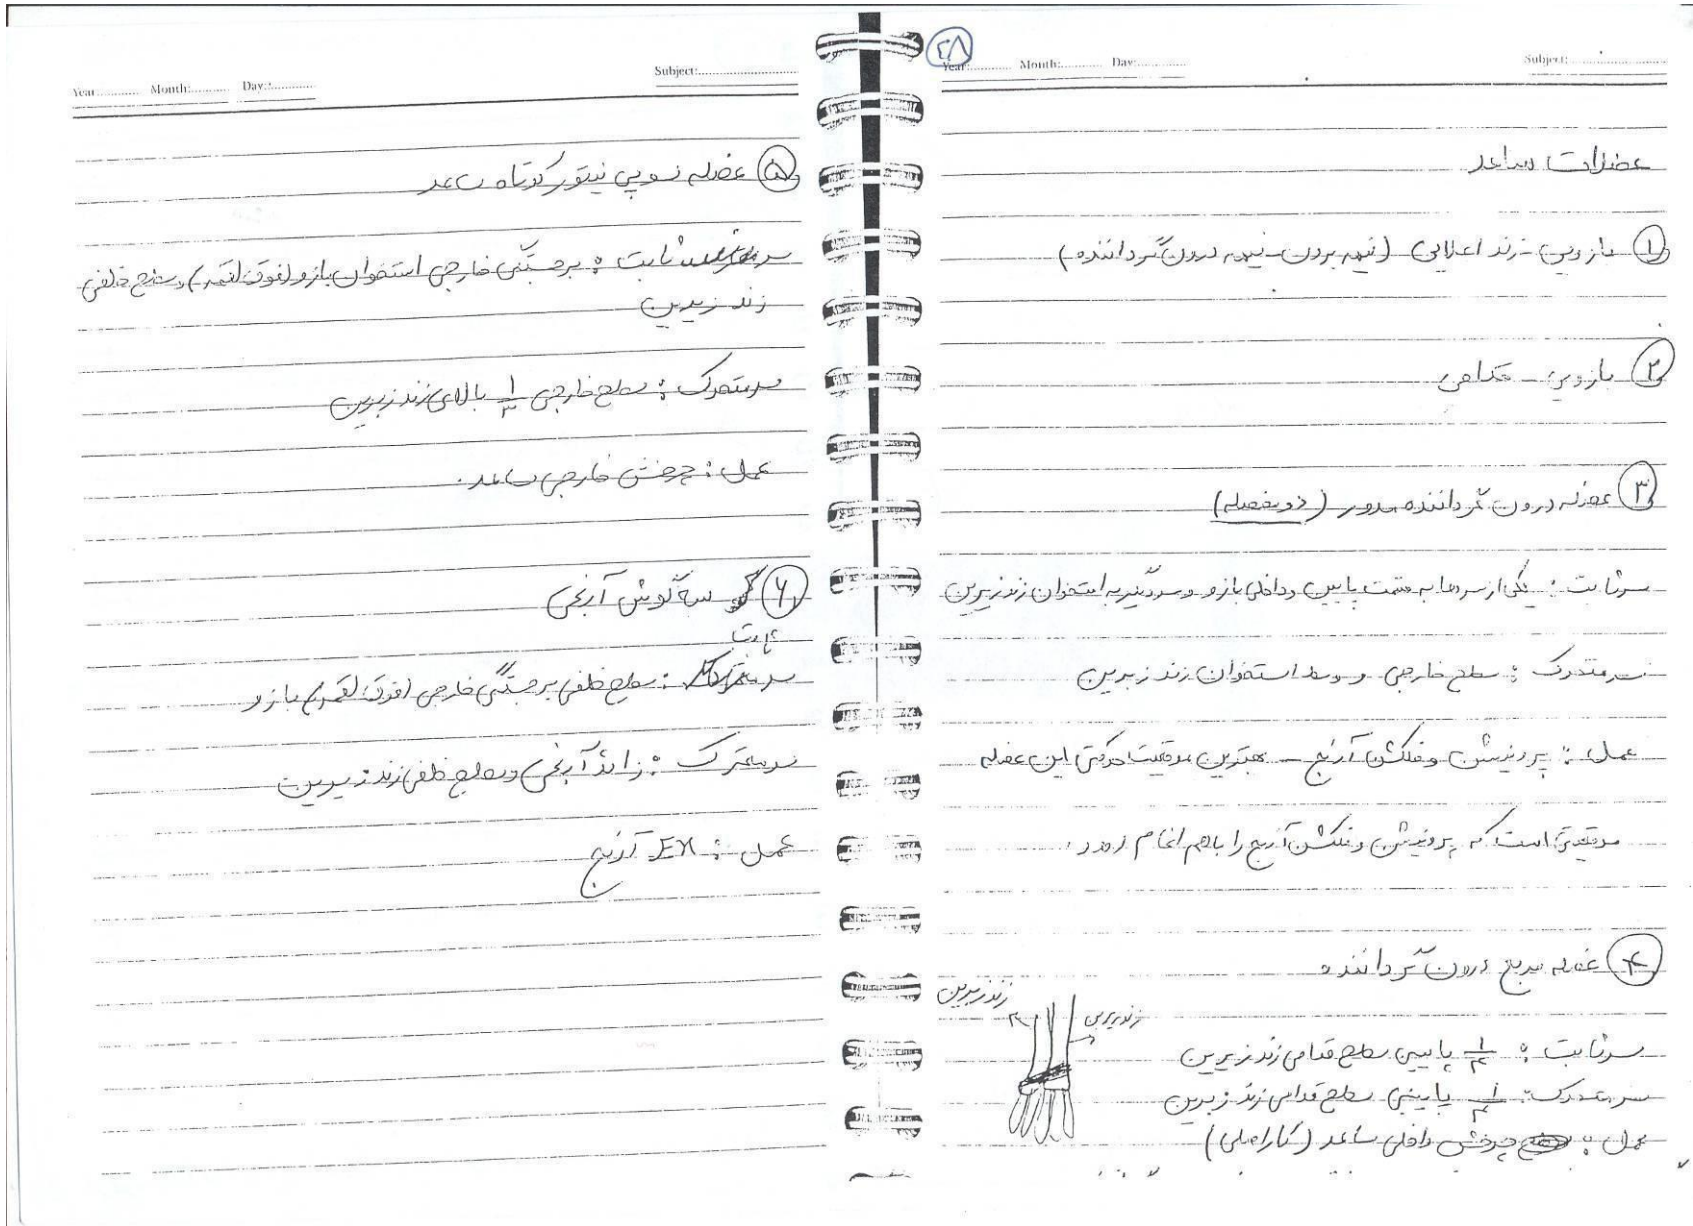 ۴۸
Year:............ Month:............ Day:............ Subject:............
عضلات ساعد
۱ بازویی - زند اعلایی (نیمه برون - نیمه درون گرداننده)
۲ بازویی - قدامی
۳ عضله درون گرداننده مدور (ذوبفصله)
سر ثابت : یکی از سرها به قسمت پایین و داخلی بازو و سر دیگر به استخوان زند زیرین
سر متحرک : سطح خارجی و وسط استخوان زند زبرین
عمل : پرونیشن و فلکشن آرنج - بهترین موقعیت حرکتی این عضله
موقعیتی است که پرونیشن و فلکشن آرنج را باهم انجام دهد.
۴ عضله مربع درون گرداننده
زند زبرین
زند زیرین
سر ثابت : ۱/۴ پایین سطح قدامی زند زیرین
سر متحرک : ۱/۴ پایینی سطح قدامی زند زبرین
عمل : چرخش داخلی ساعد (کار اصلی)
Year:............ Month:............ Day:............ Subject:............
۵ عضله سوپی نیتور کوتاه ساعد
سر ثابت : برجستگی خارجی استخوان بازو (فوق لقمه) و سطح خلفی
زند زیرین
سر متحرک : سطح خارجی ۱/۳ بالای زند زبرین
عمل : چرخش خارجی ساعد.
۶ سه گوش آرنجی
ثابت
سر : سطح خلفی برجستگی خارجی (فوق لقمه) بازو
سر متحرک : زائدۀ آرنجی و سطح خلفی زند زیرین
عمل : EX آرنج